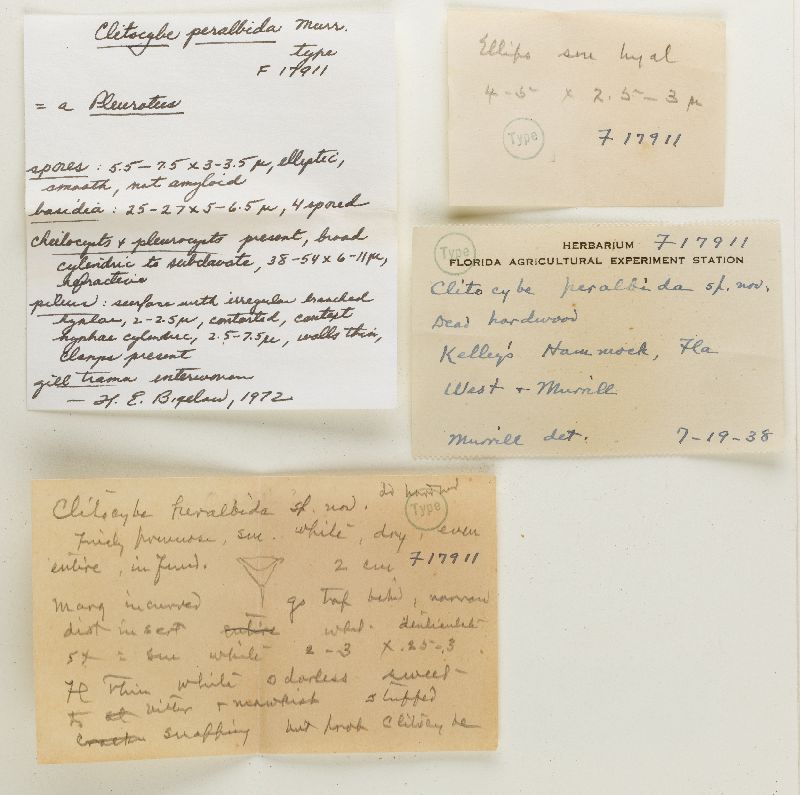 Clitocybe peralbida Murr.
type
F 17911
= a Pleurotus
spores : 5.5 – 7.5 x 3-3.5 µ, elliptic,
smooth, not amyloid
basidia : 25-27 x 5-6.5 µ, 4 spored
cheilocysts + pleurocysts present, broad
cylindric to subclavate, 38-54 x 6-11 µ,
refractive
pileus : surface with irregular branched
hyphae, 2-2.5 µ, contorted, context
hyphae cylindric, 2.5-7.5 µ, walls thin,
clamps present
gill trama interwoven
— H. E. Bigelow, 1972
Ellips sm hyal
4-5 x 2.5-3 µ
Type
F 17911
Type
HERBARIUM F 17911
FLORIDA AGRICULTURAL EXPERIMENT STATION
Clitocybe peralbida sp. nov.
Dead hardwood
Kelley's Hammock, Fla
West + Murrill
Murrill det. 7-19-38
Clitocybe peralbida sp. nov.
Type
Finely pruinose, sm. white, dry, even
entire, infund. 2 cm F 17911
Marg incurved narrow
distinct entire denticulate
5x = sm white 2-3 x .25-.3
Fl thin white odorless sweet
to bitter + mawkish stuffed
snapping but prob Clitocybe